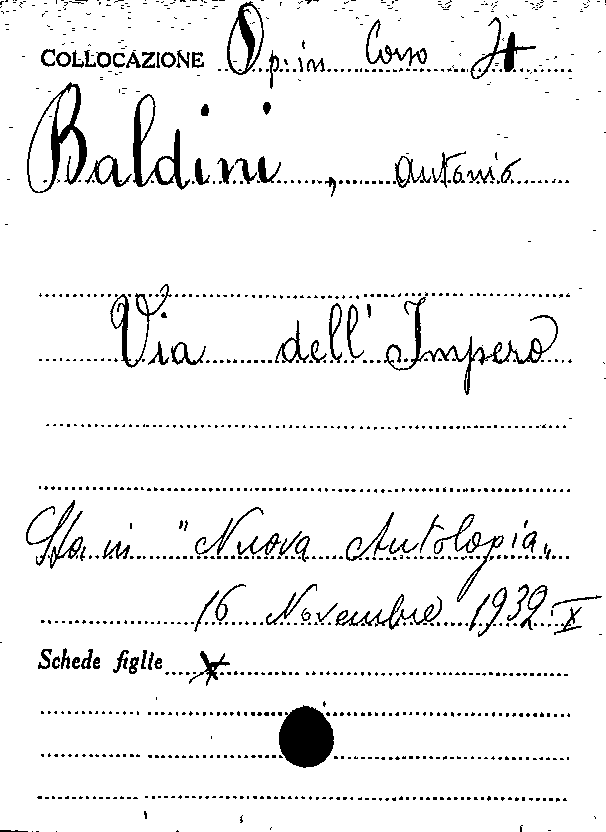 COLLOCAZIONE Op. in Corso It
Baldini, Antonio
Via dell'Impero
Sta in "Nuova Antologia„
16 Novembre 1932 X
Schede figlie